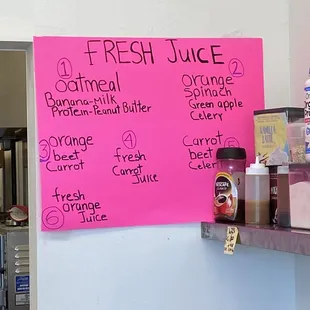 FRESH JUICE
1
oatmeal
Banana-Milk
Protein-Peanut Butter
2
orange
Spinach
Green apple
Celery
3 orange
beet
Carrot
4
fresh
Carrot
Juice
Carrot
beet 5
Celery
fresh
orange
6 Juice
NESCAFÉ